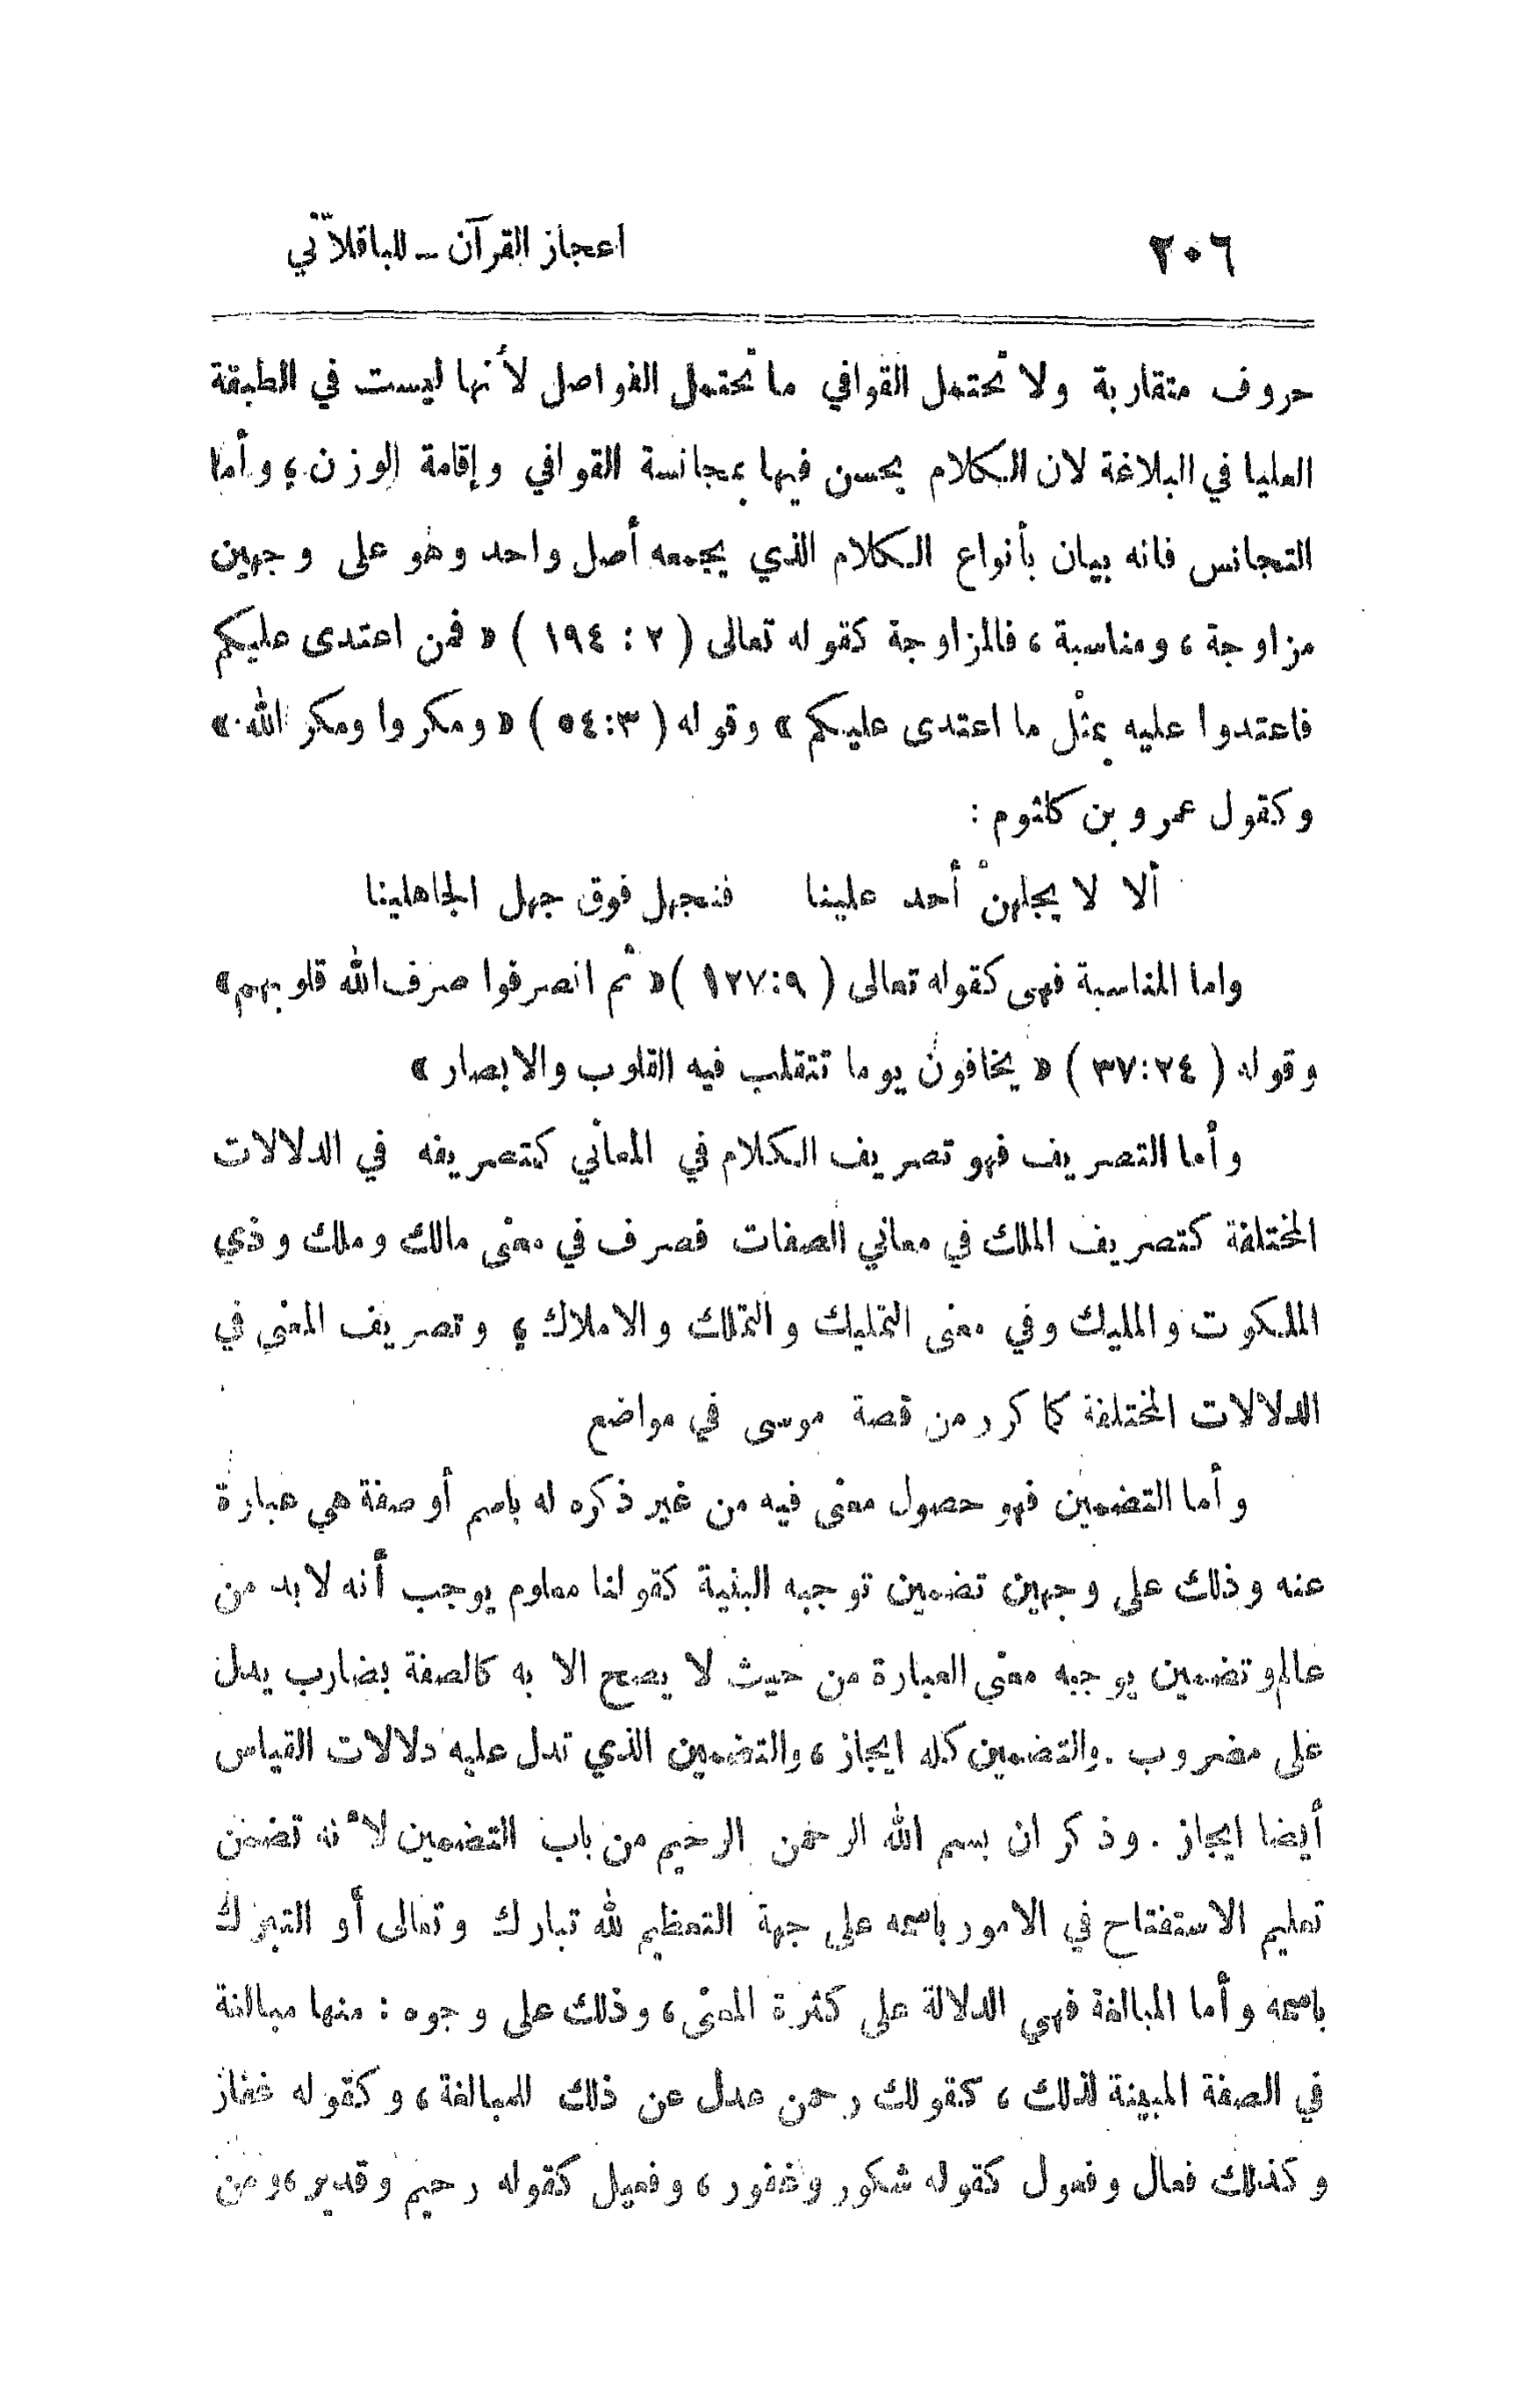 ٢٠٦ اعجاز القرآن ــ للباقلاّني
حروف متقاربة ولا تحتمل القوافي ما تحتمل الفواصل لأنها ليست في الطبقة
العليا في البلاغة لان الكلام يحسن فيها بمجانسة القوافي وإقامة الوزن ، وأما
التجانس فانه بيان بأنواع الكلام الذي يجمعه أصل واحد وهو على وجهين
مزاوجة ، ومناسبة ، فالمزاوجة كقوله تعالى ( ٢ : ١٩٤ ) « فمن اعتدى عليكم
فاعتدوا عليه بمثل ما اعتدى عليكم » وقوله ( ٣:٥٤ ) « ومكروا ومكر الله »
وكقول عمرو بن كلثوم :
ألا لا يجهلنْ أحد علينا فنجهل فوق جهل الجاهلينا
واما المناسبة فهى كقوله تعالى ( ٩:١٢٧ ) « ثم انصرفوا صرف الله قلوبهم »
وقوله ( ٢٤:٣٧ ) « يخافون يوما تتقلب فيه القلوب والابصار »
وأما التصريف فهو تصريف الكلام في المعاني كتصريفه في الدلالات
المختلفة كتصريف الملك في معاني الصفات فصرف في معنى مالك وملك وذي
الملكوت والمليك وفي معنى التمليك والتملك والاملاك ، وتصريف المعنى في
الدلالات المختلفة كما كرر من قصة موسى في مواضع
وأما التضمين فهو حصول معنى فيه من غير ذكره له باسم أو صفة هي عبارة
عنه وذلك على وجهين تضمين توجبه البنية كقولنا معلوم يوجب أنه لا بد من
عالم وتضمين يوجبه معنى العبارة من حيث لا يصح الا به كالصفة بضارب يدل
على مضروب . والتضمين كله ايجاز ، والتضمين الذي تدل عليه دلالات القياس
أيضا ايجاز . وذكر ان بسم الله الرحمن الرحيم من باب التضمين لأنه تضمن
تعليم الاستفتاح في الامور باسمه على جهة التعظيم لله تبارك وتعالى أو التبرك
باسمه وأما المبالغة فهي الدلالة على كثرة المعنى ، وذلك على وجوه : منها مبالغة
في الصفة المبينة لذلك ، كقولك رحمن عدل عن ذلك للمبالغة ، وكقوله غفار
وكذلك فعال وفعول كقوله شكور وغفور ، وفعيل كقوله رحيم وقدير ، ومن